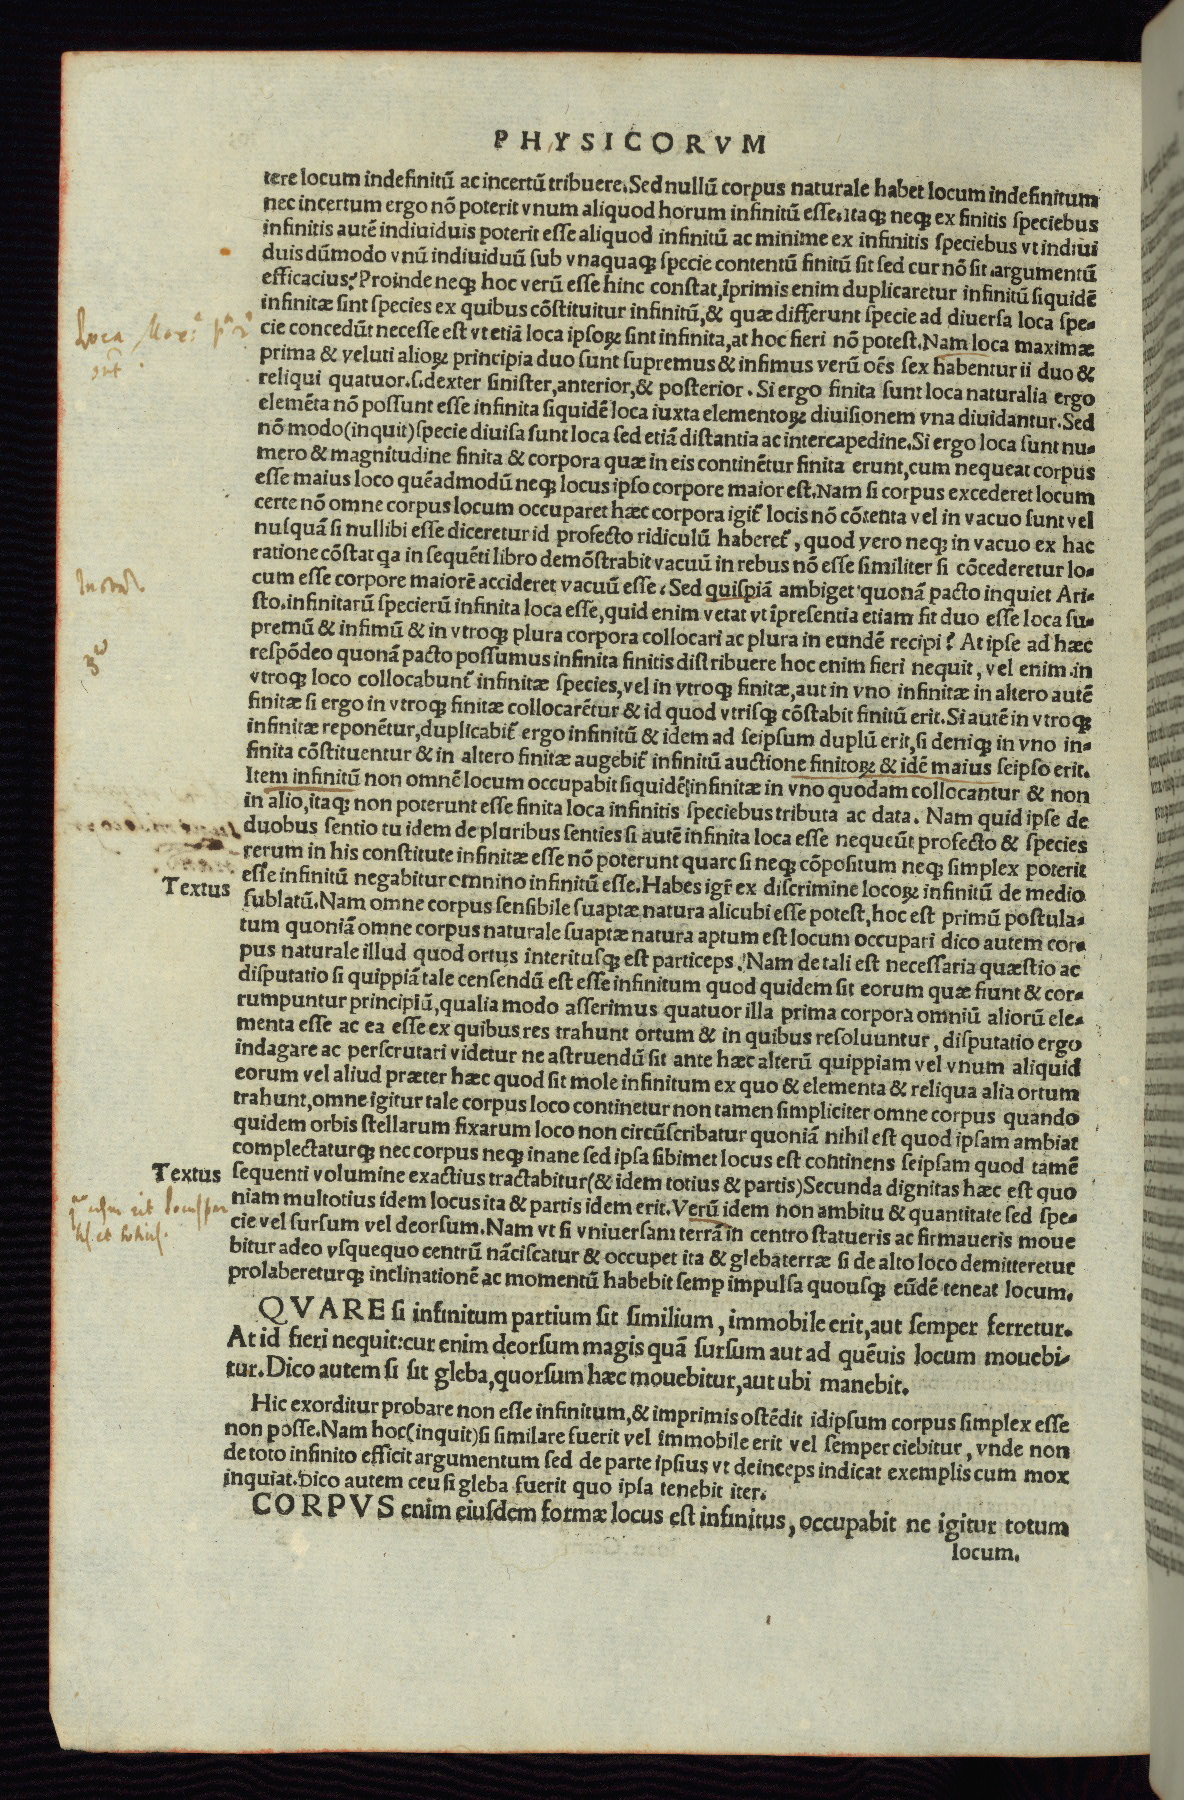 PHYSICORVM
tere locum indefinitũ ac incertũ tribuere. Sed nullũ corpus naturale habet locum indefinitum
nec incertum ergo nõ poterit vnum aliquod horum infinitũ esse. itaqꝫ neqꝫ ex finitis speciebus
infinitis autẽ indiuiduis poterit esse aliquod infinitũ ac minime ex infinitis speciebus vt indiui
duis dũmodo vnũ indiuiduũ sub vnaquaqꝫ specie contentũ finitũ sit sed cur nõ sit argumentũ
efficacius? Proinde neqꝫ hoc verũ esse hinc constat, ĩprimis enim duplicaretur infinitũ siquidẽ
infinitæ sint species ex quibus cõstituitur infinitũ, & quæ differunt specie ad diuersa loca spe-
Loca Max: p
cie concedũt necesse est vt etiã loca ipsoꝝ sint infinita, at hoc fieri nõ potest. Nam loca maximæ
sũt
prima & veluti alioꝝ principia duo sunt supremus & infimus verũ oẽs sex habentur ii duo &
reliqui quatuor. s. dexter sinister, anterior, & posterior. Si ergo finita sunt loca naturalia ergo
elemẽta nõ possunt esse infinita siquidẽ loca iuxta elementoꝝ diuisionem vna diuidantur. Sed
nõ modo (inquit) specie diuisa sunt loca sed etiã distantia ac intercapedine. Si ergo loca sunt nu-
mero & magnitudine finita & corpora quæ in eis continẽtur finita erunt, cum nequeat corpus
esse maius loco quẽadmodũ neqꝫ locus ipso corpore maior est. Nam si corpus excederet locum
certe nõ omne corpus locum occuparet hæc corpora igit̃ locis nõ cõtenta vel in vacuo sunt vel
nusquã si nullibi esse diceretur id profecto ridiculũ haberet̃, quod vero neqꝫ in vacuo ex hac
ratione cõstat qa in sequẽti libro demõstrabit vacuũ in rebus nõ esse similiter si cõcederetur lo-
cum esse corpore maiorẽ accideret vacuũ esse. Sed quispiã ambiget quonã pacto inquiet Ari-
sto. infinitarũ specierũ infinita loca esse, quid enim vetat vt ĩpresentia etiam sit duo esse loca su-
premũ & infimũ & in vtroqꝫ plura corpora collocari ac plura in eundẽ recipi? At ipse ad hæc
respõdeo quonã pacto possumus infinita finitis distribuere hoc enim fieri nequit, vel enim in
vtroqꝫ loco collocabunt̃ infinitæ species, vel in vtroqꝫ finitæ, aut in vno infinitæ in altero autẽ
finitæ si ergo in vtroqꝫ finitæ collocarẽtur & id quod vtrisqꝫ cõstabit finitũ erit. Si autẽ in vtroqꝫ
infinitæ reponẽtur, duplicabit̃ ergo infinitũ & idem ad seipsum duplũ erit, si deniqꝫ in vno in-
finita cõstituentur & in altero finitæ augebit̃ infinitũ auctione finitoꝝ & idẽ maius seipso erit.
Item infinitũ non omnẽ locum occupabit siquidẽ infinitæ in vno quodam collocantur & non
in alio, itaqꝫ non poterunt esse finita loca infinitis speciebus tributa ac data. Nam quid ipse de
duobus sentio tu idem de pluribus senties si autẽ infinita loca esse nequeũt profecto & species
rerum in his constitute infinitæ esse nõ poterunt quare si neqꝫ cõpositum neqꝫ simplex poterit
Textus
esse infinitũ negabitur omnino infinitũ esse. Habes igr̃ ex discrimine locoꝝ infinitũ de medio
sublatũ. Nam omne corpus sensibile suaptæ natura alicubi esse potest, hoc est primũ postula-
tum quoniã omne corpus naturale suaptæ natura aptum est locum occupari dico autem cor-
pus naturale illud quod ortus interitusqꝫ est particeps. Nam de tali est necessaria quæstio ac
disputatio si quippiã tale censendũ est esse infinitum quod quidem sit eorum quæ fiunt & cor-
rumpuntur principiũ, qualia modo asserimus quatuor illa prima corpora omniũ aliorũ ele-
menta esse ac ea esse ex quibus res trahunt ortum & in quibus resoluuntur, disputatio ergo
indagare ac perscrutari videtur ne astruendũ sit ante hæc alterũ quippiam vel vnum aliquid
eorum vel aliud præter hæc quod sit mole infinitum ex quo & elementa & reliqua alia ortum
trahunt, omne igitur tale corpus loco continetur non tamen simpliciter omne corpus quando
quidem orbis stellarum fixarum loco non circũscribatur quoniã nihil est quod ipsam ambiat
complectaturqꝫ nec corpus neqꝫ inane sed ipsa sibimet locus est continens seipsam quod tamẽ
Textus
sequenti volumine exactius tractabitur (& idem totius & partis) Secunda dignitas hæc est quo
niam multotius idem locus ita & partis idem erit. Verũ idem non ambitu & quantitate sed spe-
cie vel sursum vel deorsum. Nam vt si vniuersam terrã in centro statueris ac firmaueris moue
bitur adeo vsquequo centrũ nãciscatur & occupet ita & glebaterræ si de alto loco demitteretur
prolabereturqꝫ inclinationẽ ac momentũ habebit semp impulsa quousqꝫ eũdẽ teneat locum.
QVARE si infinitum partium sit similium, immobile erit, aut semper ferretur.
At id fieri nequit: cur enim deorsum magis quã sursum aut ad quẽuis locum mouebi-
tur. Dico autem si sit gleba, quorsum hæc mouebitur, aut ubi manebit.
Hic exorditur probare non esse infinitum, & imprimis ostẽdit idipsum corpus simplex esse
non posse. Nam hoc (inquit) si similare fuerit vel immobile erit vel semper ciebitur, vnde non
de toto infinito efficit argumentum sed de parte ipsius vt deinceps indicat exemplis cum mox
inquiat. Dico autem ceu si gleba fuerit quo ipsa tenebit iter.
CORPVS enim eiusdem formæ locus est infinitus, occupabit ne igitur totum
locum.